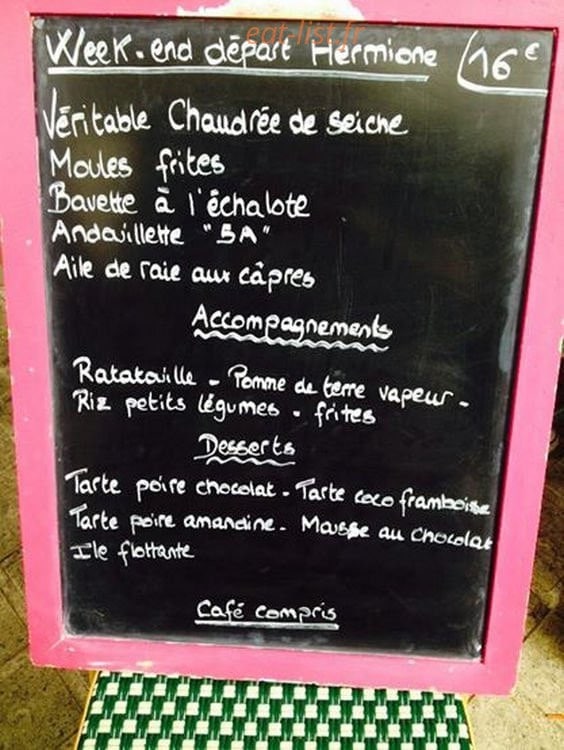 eat-list.fr
Week-end départ Hermione 16€
Véritable Chaudrée de seiche
Moules frites
Bavette à l'échalote
Andouillette "5A"
Aile de raie aux câpres
Accompagnements
Ratatouille - Pomme de terre vapeur -
Riz petits légumes - frites
Desserts
Tarte poire chocolat - Tarte coco framboise
Tarte poire amandine - Mousse au chocolat
Ile flottante
Café compris